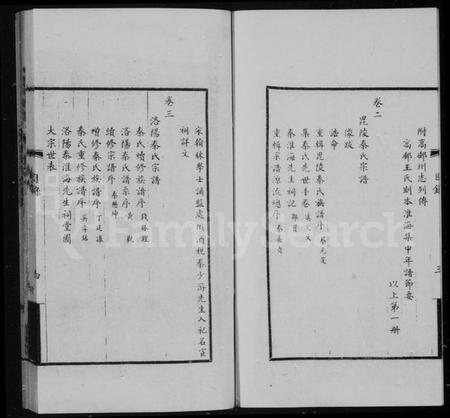 附高郵州志列傳
高郵王氏刻本淮海集中年譜節要
以上第一册
卷二
毘陵秦氏宗譜
像敘
誥命
重輯毘陵秦氏族譜序
集秦氏先世手卷
秦淮海先生祠記
重輯宗譜源流總序
目錄
三
宋翰林學士誦監處州酒税秦少游先生入祀名宦
祠詳文
卷三
洛陽秦氏宗譜
秦氏續修族譜序
洛陽秦氏譜系序
續修宗譜序
增修秦氏族譜序 丁廷讓
秦氏重修族譜序
洛陽秦淮海先生祠堂圖
大宗世表
目錄
FamilySearch